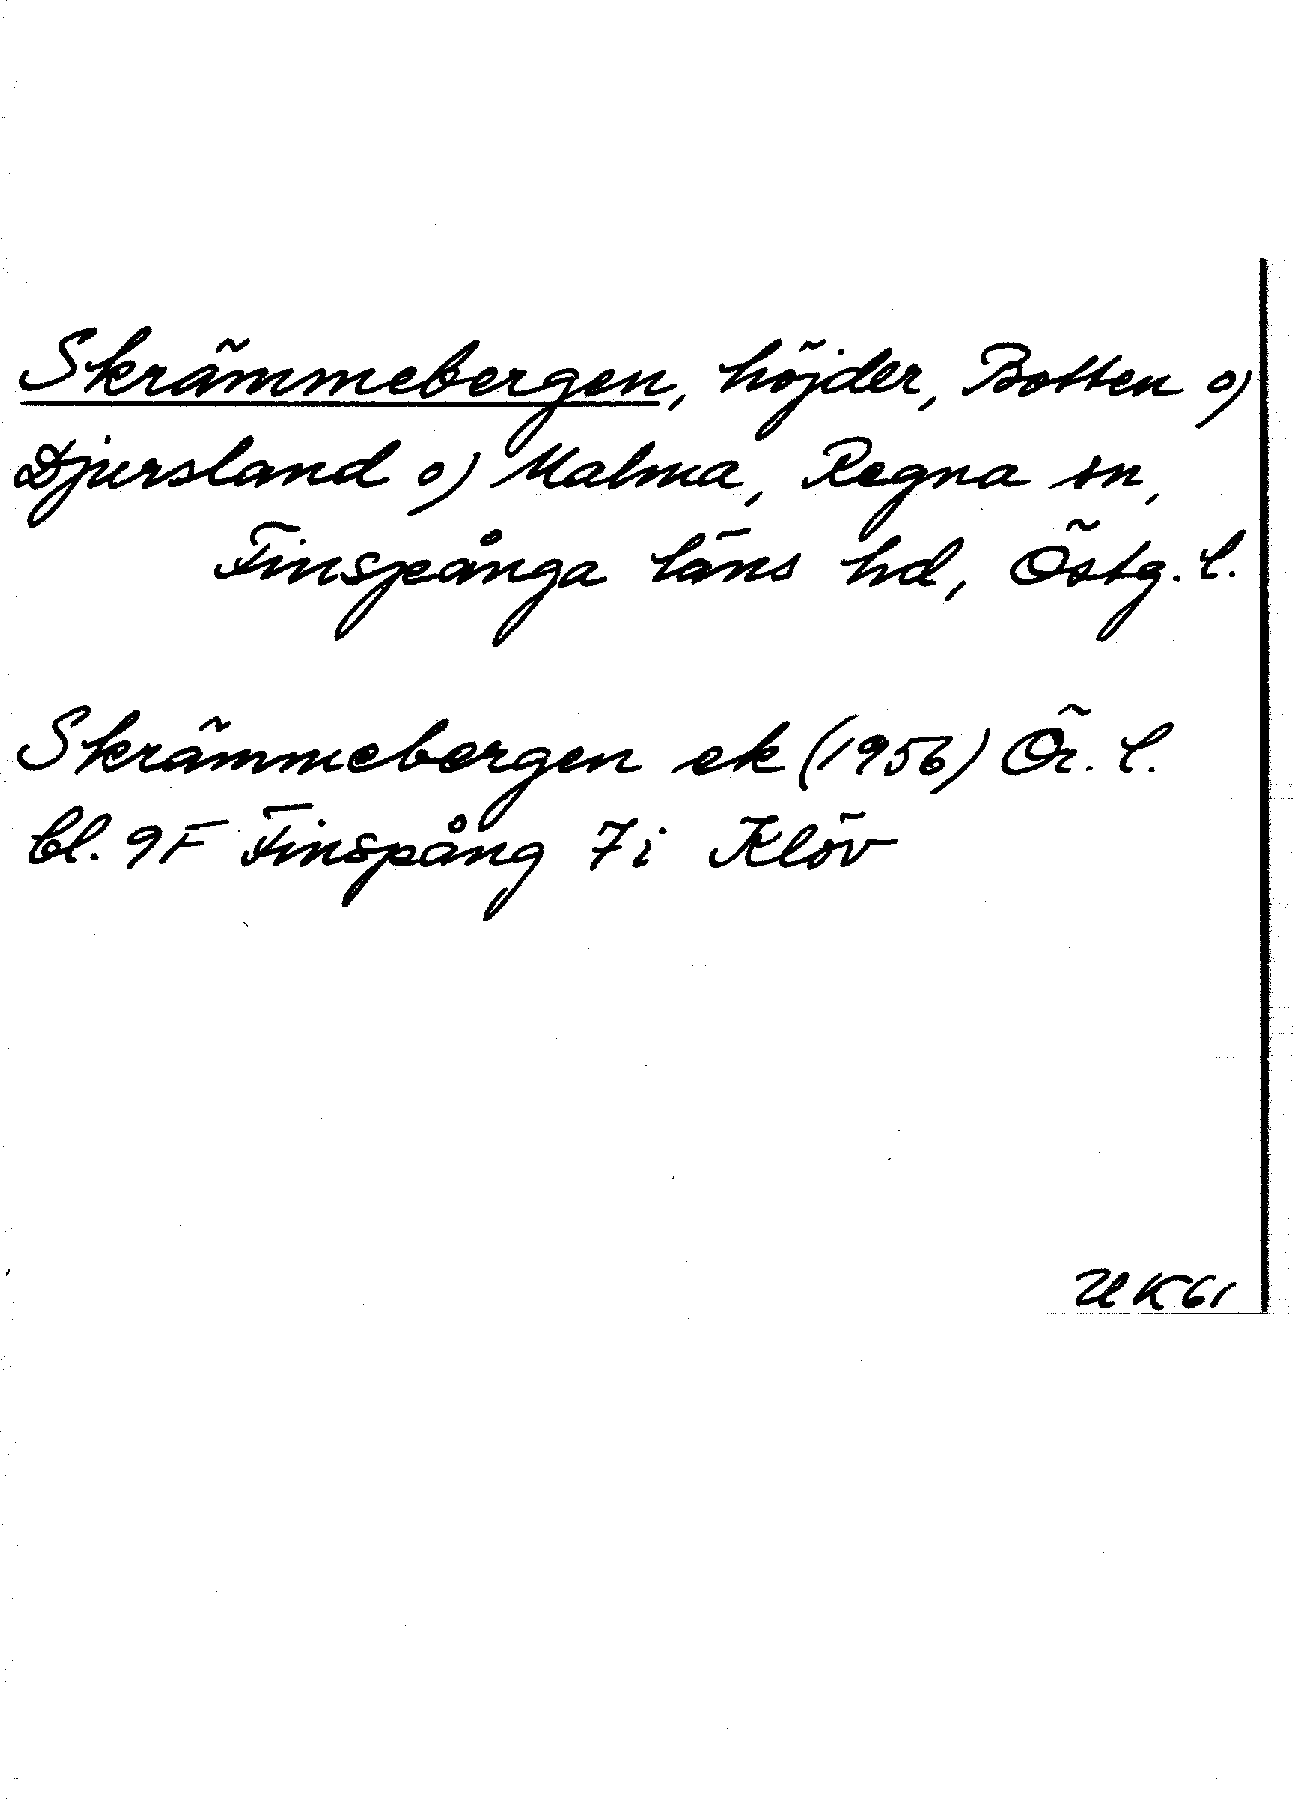 Skrämmebergen, höjder, Botten o)
Djursland o) Malma, Regna sn,
Finspånga läns hd, Östg. l.
Skrämmebergen ek (1956) Ör. l.
bl. 9F Finspång 7i Klöv
UK61